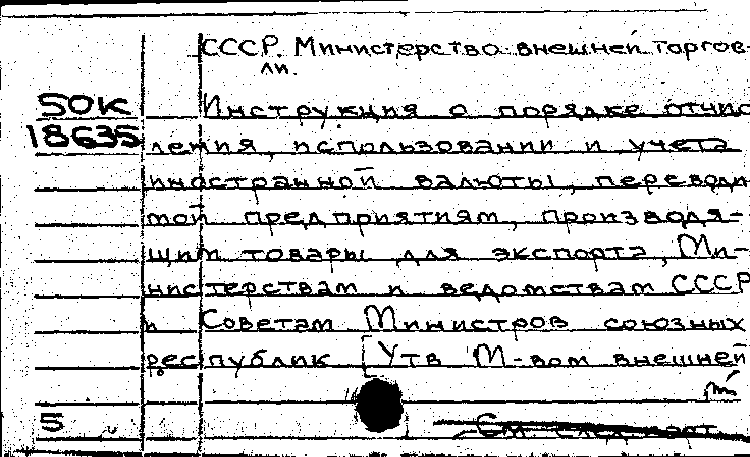 СССР. Министерство внешней торгов-
ли.
50К Инструкция о порядке отчис
18635 ления, использовании и учета
иностранной валюты, переводи-
мой предприятиям, производя-
щим товары для экспорта, Ми-
нистерствам и ведомствам СССР
и Советам Министров союзных
республик [Утв М-вом внешней
5 См. след. карт.